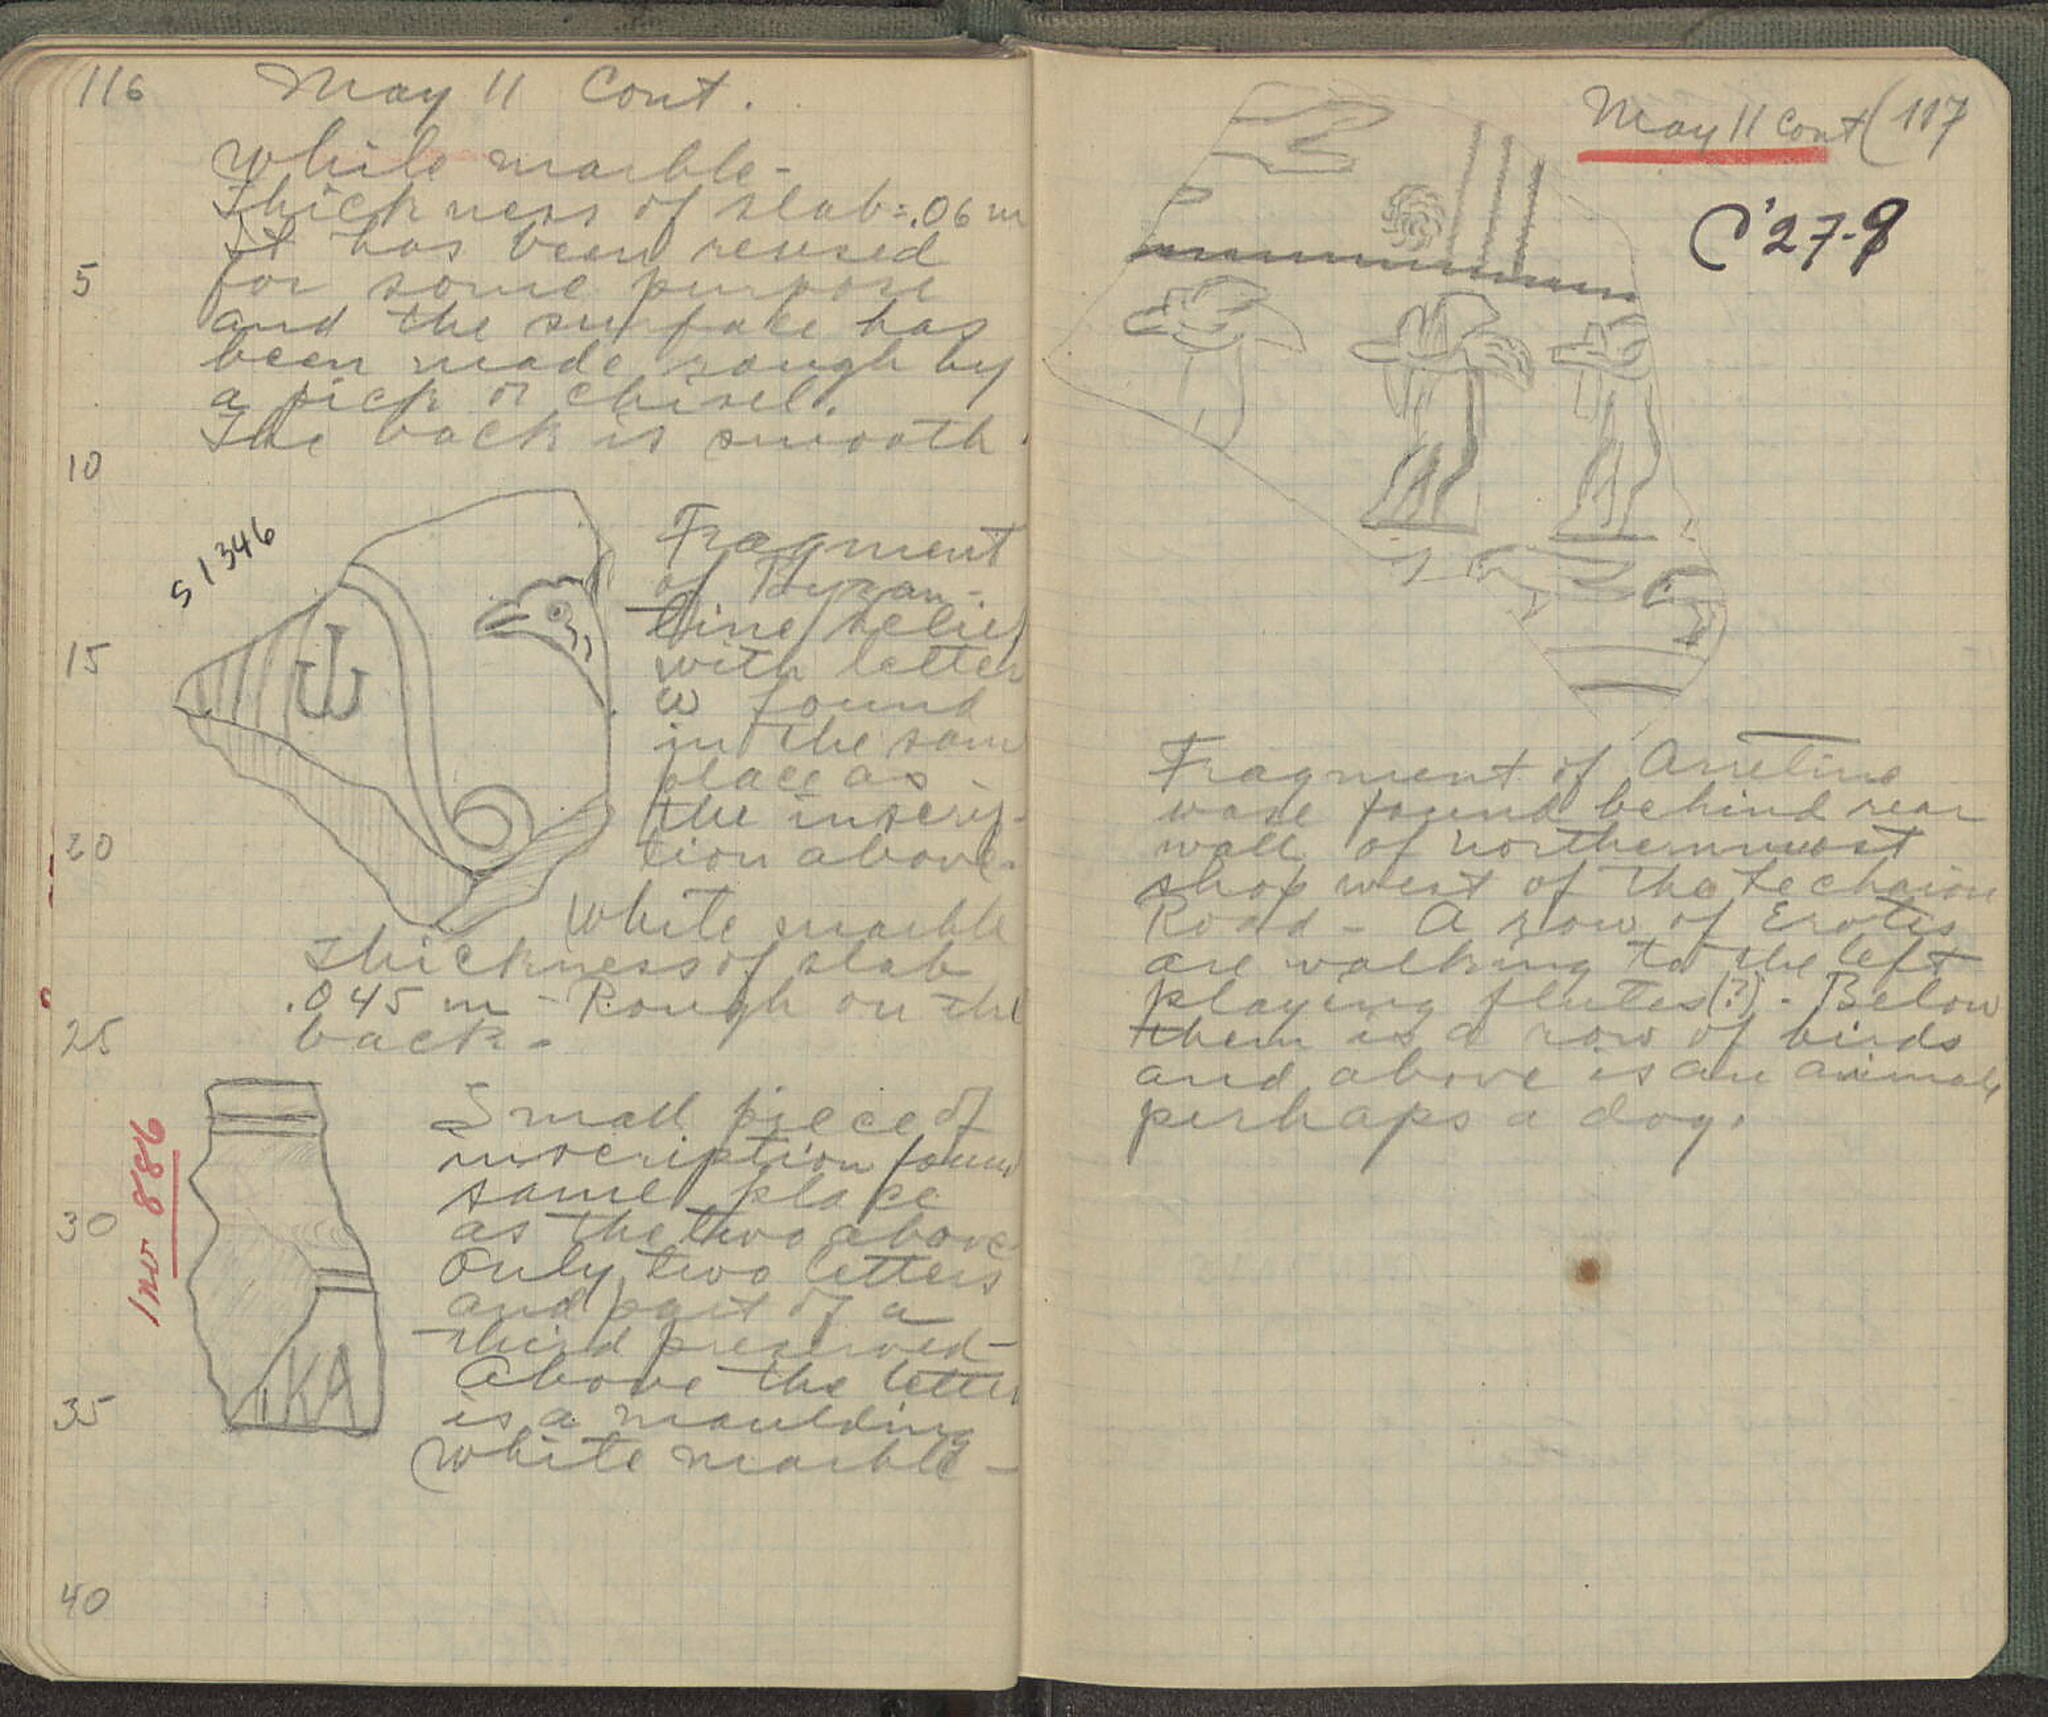 116 May 11 Cont.
White marble -
Thickness of slab = .06 m
It has been reused
5
for some purpose
and the surface has
been made rough by
a pick or chisel.
The back is smooth.
10
S 1346
Fragment
of Byzan-
tine relief
15
with letter
ω found
in the same
place as
the inscrip-
20
tion above.
White marble
Thickness of slab
.045 m - Rough on the
25
back -
Small piece of
inscription found
same place
30
as the two above
Only two letters
and part of a
third preserved -
Above the letters
35
is a moulding
White marble -
Inv 886
KA
40
May 11 Cont (117
C '27-9
Fragment of Arretine
ware found behind rear
wall of northernmost
shop west of the Lechaion
Road - A row of Erotes
are walking to the left
playing flutes (?) - Below
them is a row of birds
and above is an animal,
perhaps a dog.